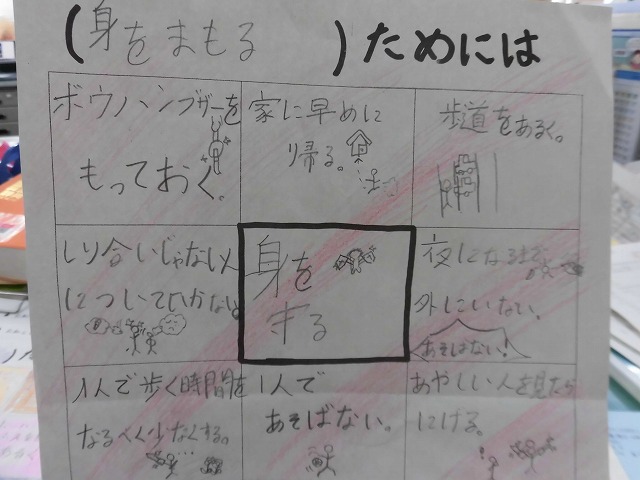 (身をまもる)ためには
ボウハンブザーを
もっておく。
家に早めに
帰る。
歩道をあるく。
しり合いじゃない人
についてひかない
身を
まもる
夜になるまで
外にいない。
あそばない!
1人で歩く時間を
なるべく少なくする。
1人で
あそばない。
あやしい人を見たら
にげる。